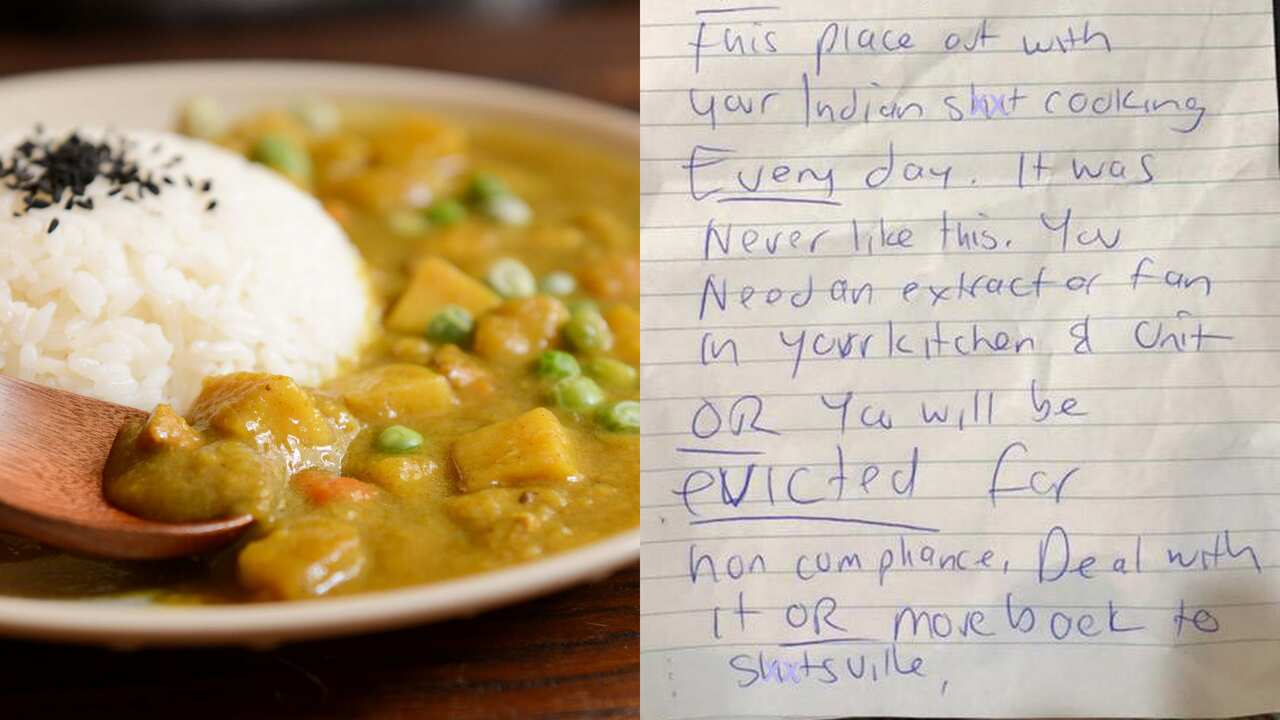 this place out with
your Indian shxt cooking
Every day. It was
Never like this. You
Need an extractor fan
in your kitchen & Unit
OR You will be
evicted for
non compliance. Deal with
it OR move back to
shxtsville,